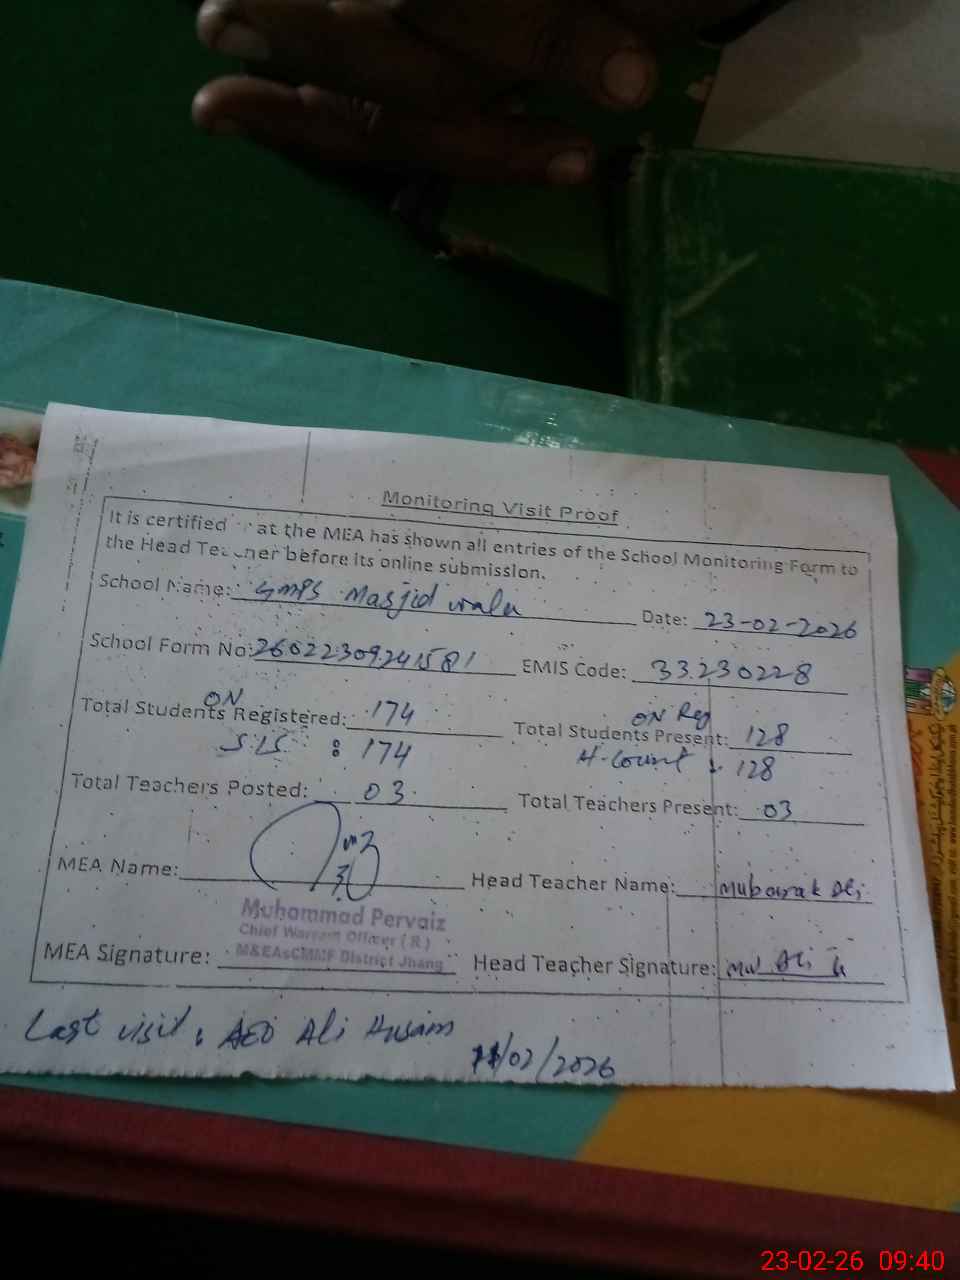 Monitoring Visit Proof
It is certified at the MEA has shown all entries of the School Monitoring Form to
the Head Teacher before its online submission.
School Name: GMPS Masjid wala Date: 23-02-2026
School Form No: 26022309241581 EMIS Code: 33230228
ON ON Reg
Total Students Registered: 174 Total Students Present: 128
SIS : 174 H-Count : 128
Total Teachers Posted: 03 Total Teachers Present: 03
MEA Name: Head Teacher Name: Mubarak Ali
Muhammad Pervaiz
Chief Warrant Officer (R)
M&EAsCMMF District Jhang
MEA Signature: Head Teacher Signature:
Last visit : AEO Ali Husain
11/02/2026
23-02-26 09:40